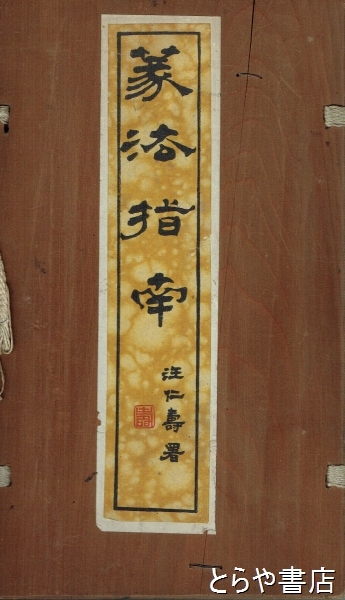 篆法指南
汪仁壽署
壽
とらや書店